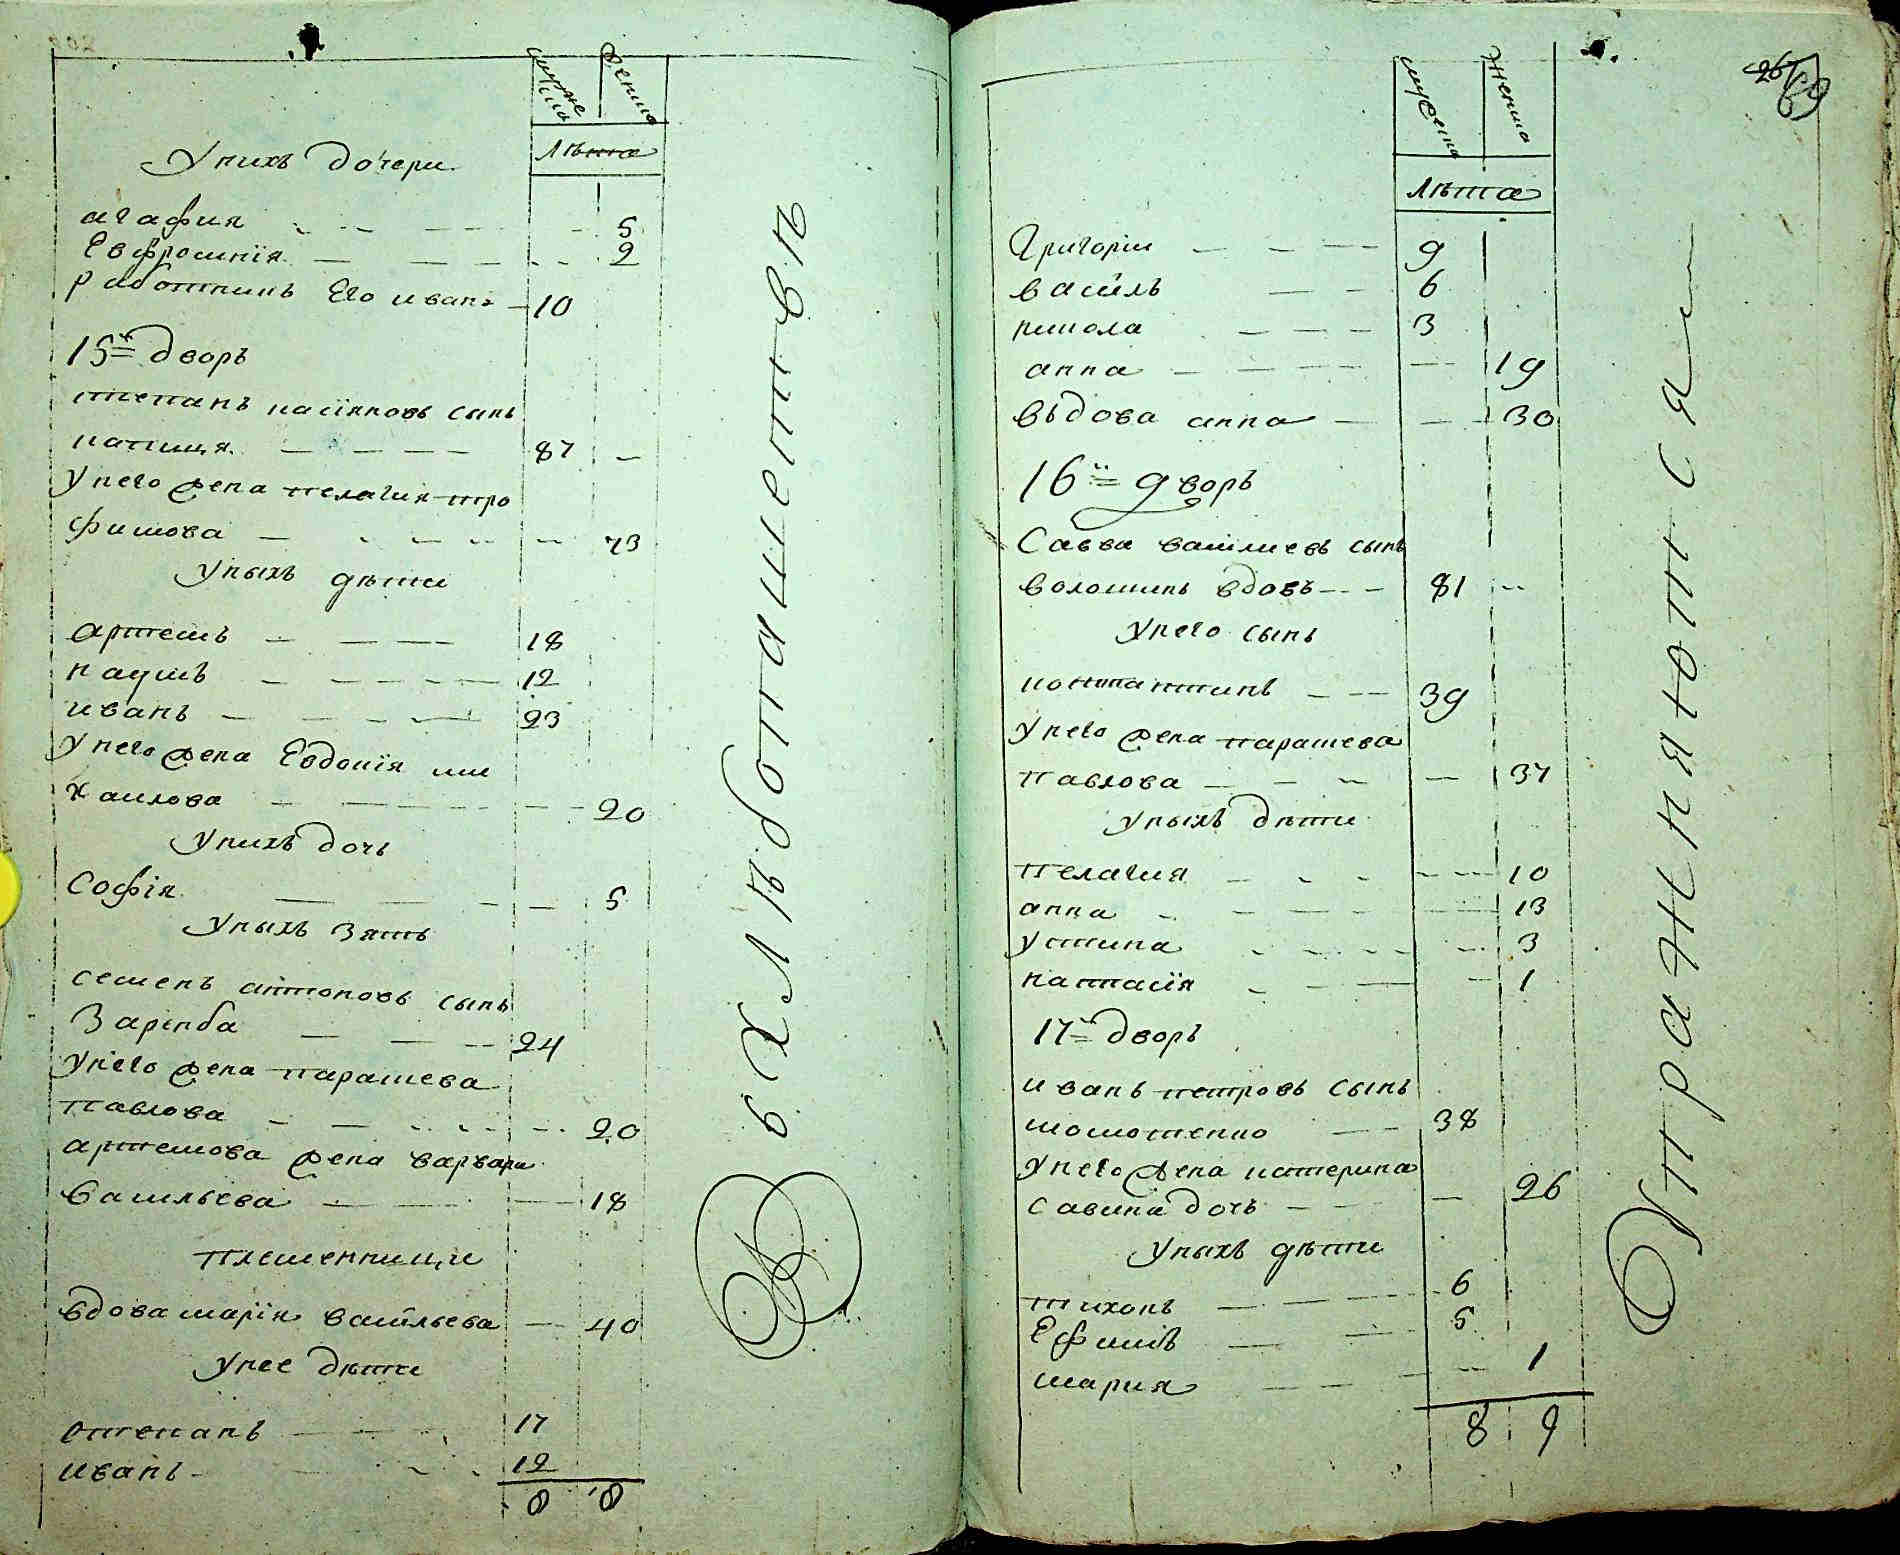 мужеска
женска
лѣта
Унихъ дочери
агафия 5
Евфросинїя 2
работникъ Его иванъ 10
15й дворъ
степанъ касїяновъ сынъ
капиця 87
Унего жена пелагия тро
фимова 73
Уныхъ дѣти
артемъ 18
наумъ 12
иванъ 23
Унего жена Евдокїя ми
хаилова 20
Унихъ дочь
Софїя 5
Уныхъ Зять
семенъ антоновъ сынъ
Заруба 24
Унего жена парасцева
павлова 20
артемова жена варвара
васильева 18
племенници
вдова марїя васильева 40
Унее дѣти
степанъ 17
иванъ 12
8 8
В хлѣбопашествѣ
69
мужеска
женска
лѣта
Григорїи 9
васїль 6
никола 3
анна 19
вьдова анна 30
16й дворъ
Савва василиевъ сынъ
волошинъ вдовъ 81
Унего сынъ
константинъ 39
Унего жена парасцева
павлова 37
Уныхъ дѣти
пелагия 10
анна 13
устина 3
настасїя 1
17й дворъ
иванъ петровъ сынъ
шоломенко 38
Унего жена катерина
савина дочь 26
Уныхъ дѣти
тихонъ 6
Ефимъ 5
мария 1
8 9
Упражняются